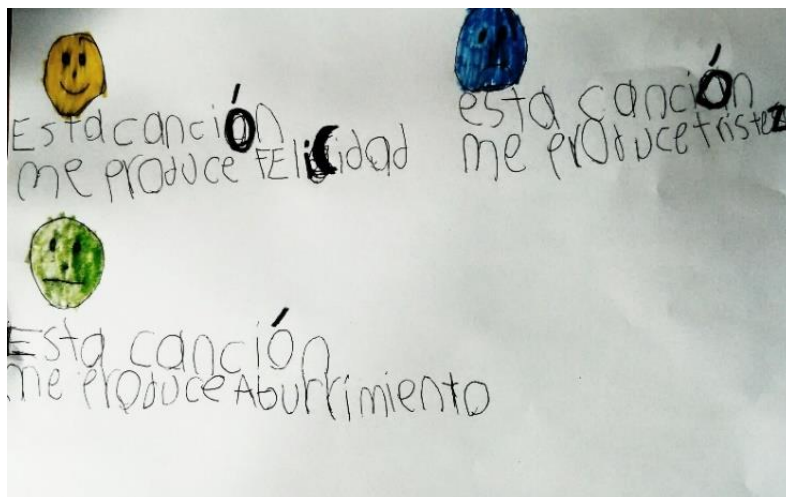 Esta canción
me produce FEliCidad
esta canción
me produce tristez
Esta canción
me produce Aburrimiento